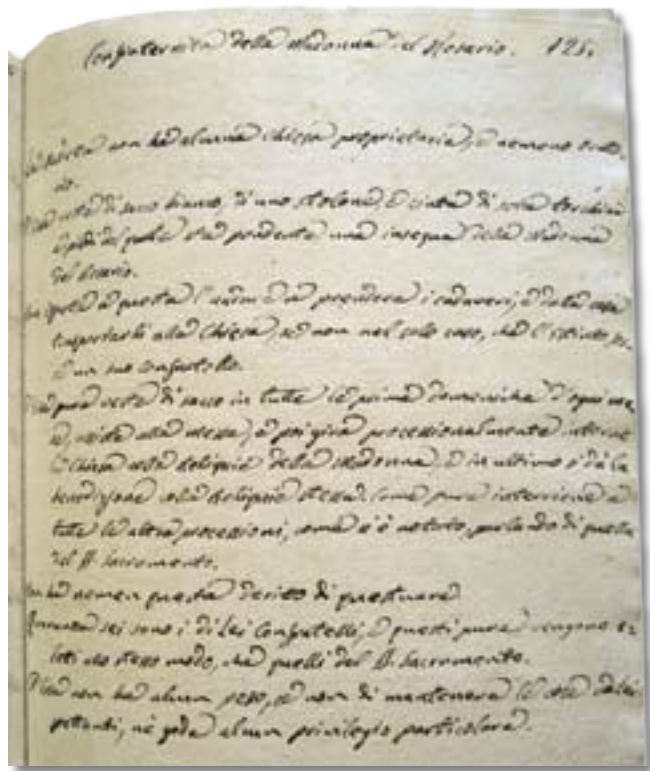 Confraternita della Madonna del Rosario. 125.
non ha alcuna Chiesa proprietaria, e nemeno Orato-
rio.
veste di sacco bianco, di uno stolone, e cinta di seta torchina
a piedi del quale sta pendente una insegna della Madonna
del Rosario.
a questa l'andar a prendere i cadaveri, e dalla casa
trasportarli alla Chiesa, se non nel solo caso, che l'estinto,
un suo confratello.
pure veste di sacco in tutte le prime domeniche d'ogni me-
se, assiste alla messa, e poi gira processionalmente
la Chiesa colla Reliquia della Madonna, e in ultimo si dà la
benedizione colla Reliquia stessa. Come pure interviene a
tutte le altre processioni, come si è notato, parlando di quella
del SS. Sacramento.
Non ha nemen questa deritto di questuare.
Quaranta sei sono i di Lei Confratelli, e questi pure vengono e-
letti allo stesso modo, che quelli del SS. Sacramento.
non ha alcun peso, se non di mantenere le cose da lei
, nè gode alcun privilegio particolare.